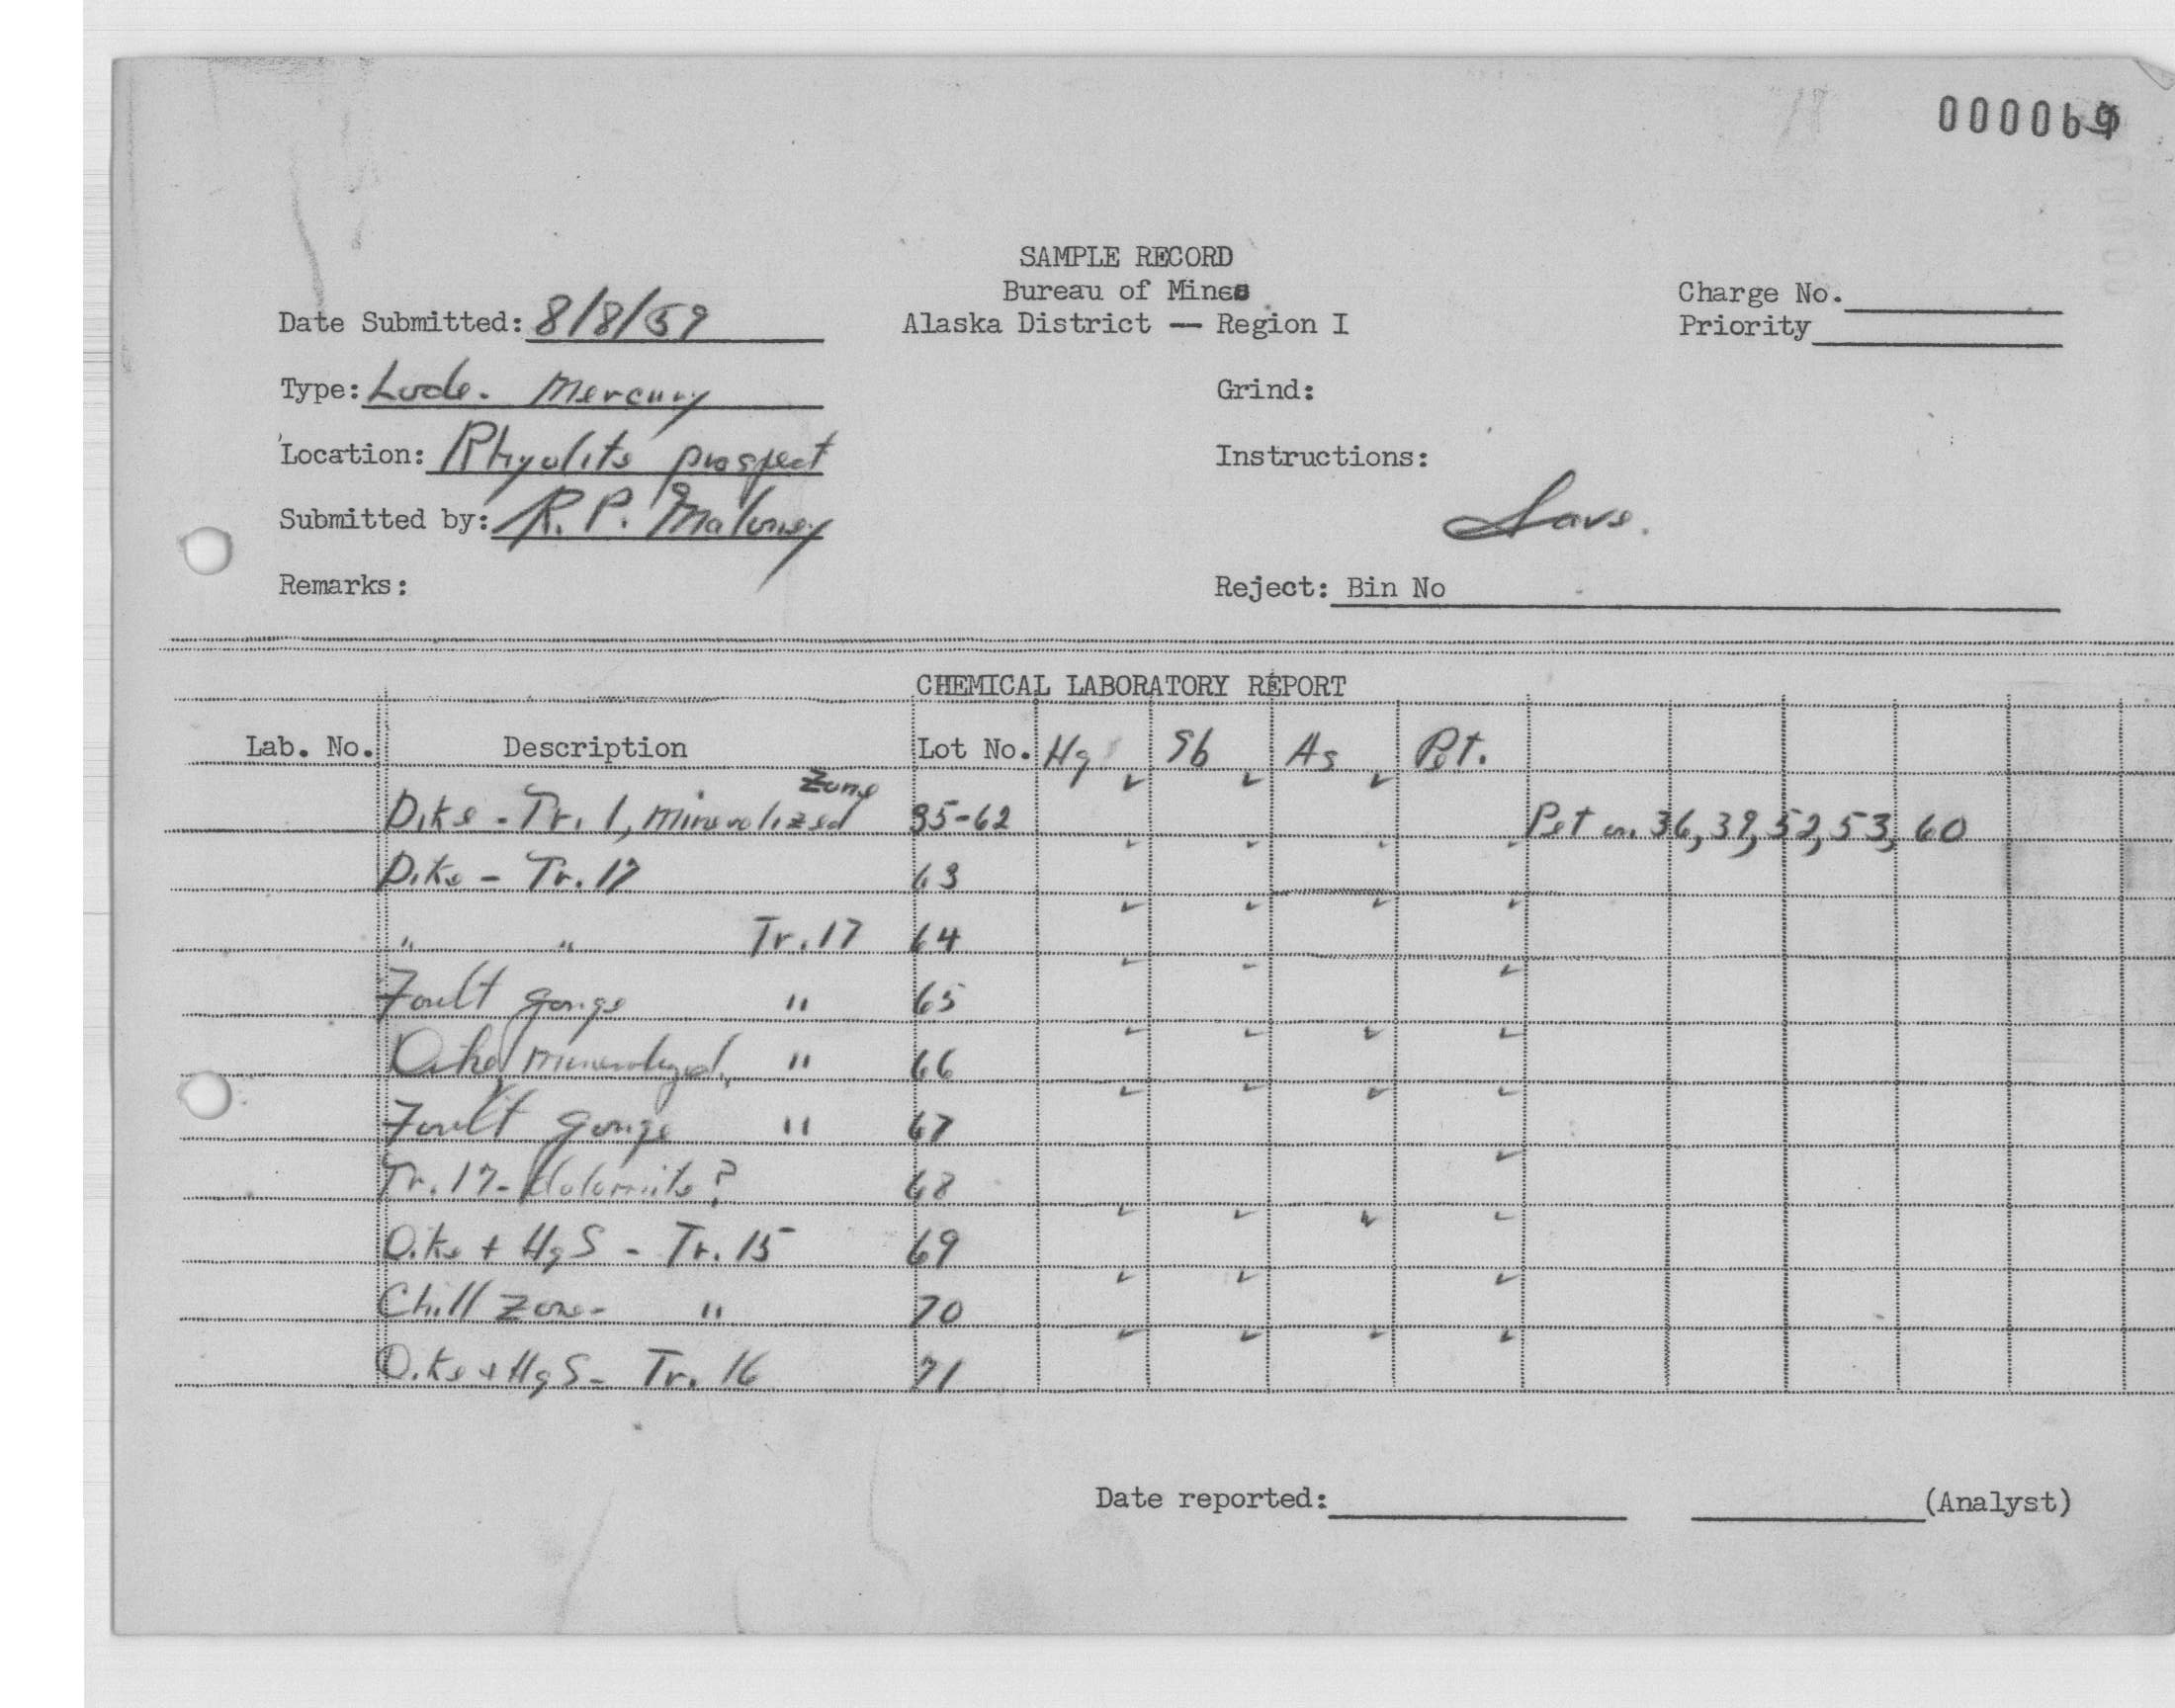 SAMPLE RECORD
Bureau of Mines
Alaska District — Region I
Date Submitted: 8/8/59
Charge No.
Priority
Type: Lode. Mercury
Grind:
Location: Rhyolite prospect
Instructions:
Save.
Submitted by: R. P. Maloney
Remarks:
Reject: Bin No
CHEMICAL LABORATORY REPORT
Lab. No. Description Lot No. Hg Sb As Pet.
Dike - Tr. 1, mineralized zone 35-62 ✓ ✓ ✓ Pet on 36, 39, 52, 53, 60
Dike - Tr. 17 63 ✓ ✓ ✓ ✓
" " Tr. 17 64 ✓ ✓ ✓ ✓
Fault gouge " 65 ✓ ✓ ✓
Dike, mineralized, " 66 ✓ ✓ ✓ ✓
Fault gouge " 67 ✓ ✓ ✓ ✓
Tr. 17 - dolomite? 68 ✓
Dike + HgS - Tr. 15 69 ✓ ✓ ✓ ✓
Chill zone - " 70 ✓ ✓ ✓
Dike + HgS - Tr. 16 71 ✓ ✓ ✓ ✓
Date reported: (Analyst)